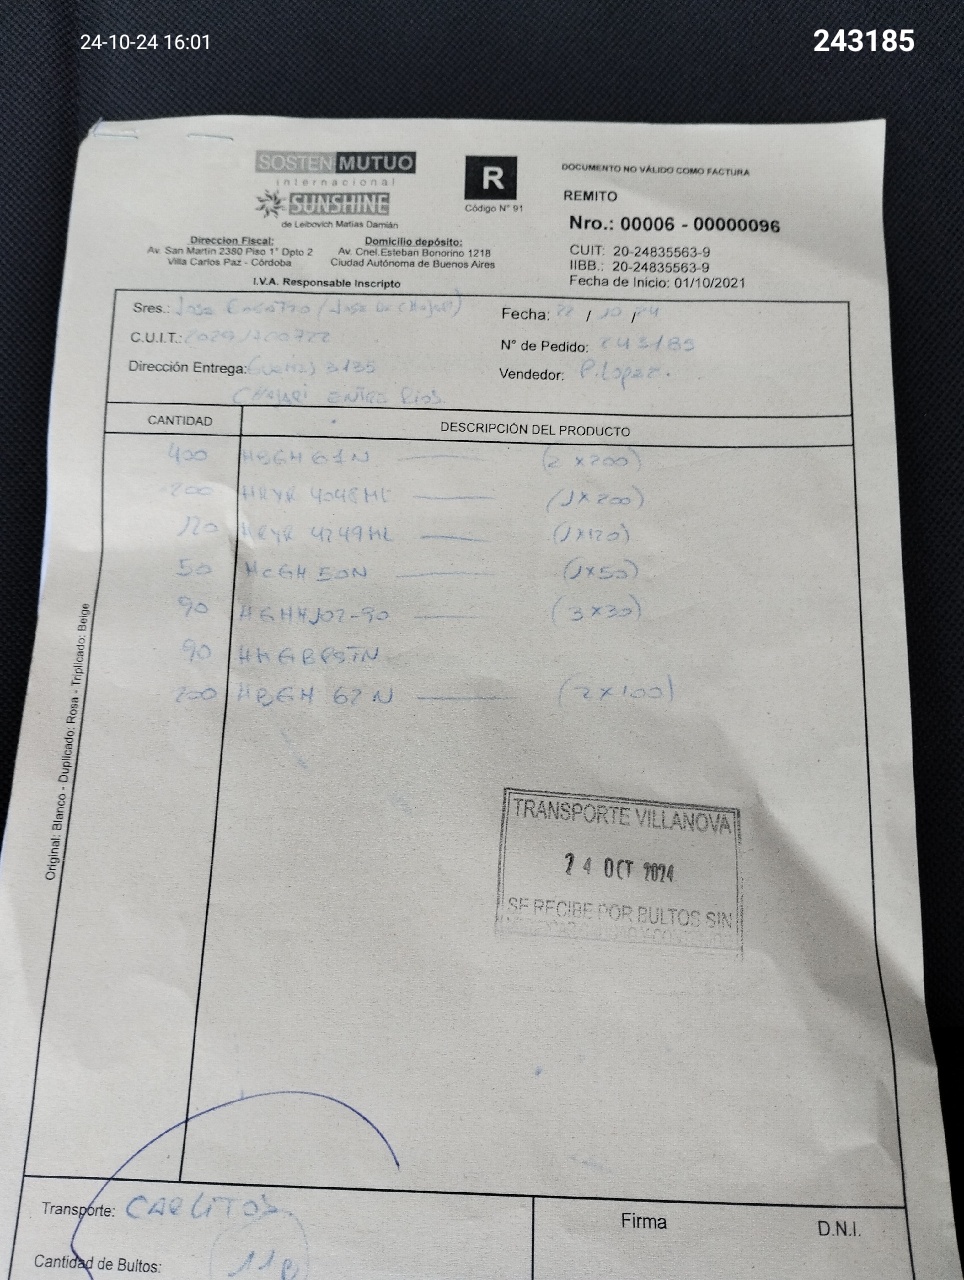 24-10-24 16:01
243185
SOSTEN MUTUO
internacional
SUNSHINE
de Leibovich Matias Damián
Direccion Fiscal:
Av. San Martín 2380 Piso 1° Dpto 2
Villa Carlos Paz - Córdoba
Domicilio depósito:
Av. Cnel.Esteban Bonorino 1218
Ciudad Autónoma de Buenos Aires
I.V.A. Responsable Inscripto
R
Código N° 91
DOCUMENTO NO VÁLIDO COMO FACTURA
REMITO
Nro.: 00006 - 00000096
CUIT: 20-24835563-9
IIBB.: 20-24835563-9
Fecha de Inicio: 01/10/2021
Sres.: Jose
Fecha: 22 / 10 / 24
C.U.I.T.:
N° de Pedido: 243185
Dirección Entrega: 3135
Vendedor: P. Lopez.
CHAJARI ENTRE RIOS
CANTIDAD
DESCRIPCIÓN DEL PRODUCTO
400 HBGH 61N (2 x 200)
200 HRYR 4048ML (1 x 200)
120 HRYR 4249ML (1x120)
50 HCGH 50N (1x50)
90 (3x30)
90
200 HBGH 62N (2x100)
Original: Blanco - Duplicado: Rosa - Triplicado: Beige
TRANSPORTE VILLANOVA
24 OCT 2024
SE RECIBE POR BULTOS SIN
Transporte: CARLITOS
Firma
D.N.I.
Cantidad de Bultos: 11